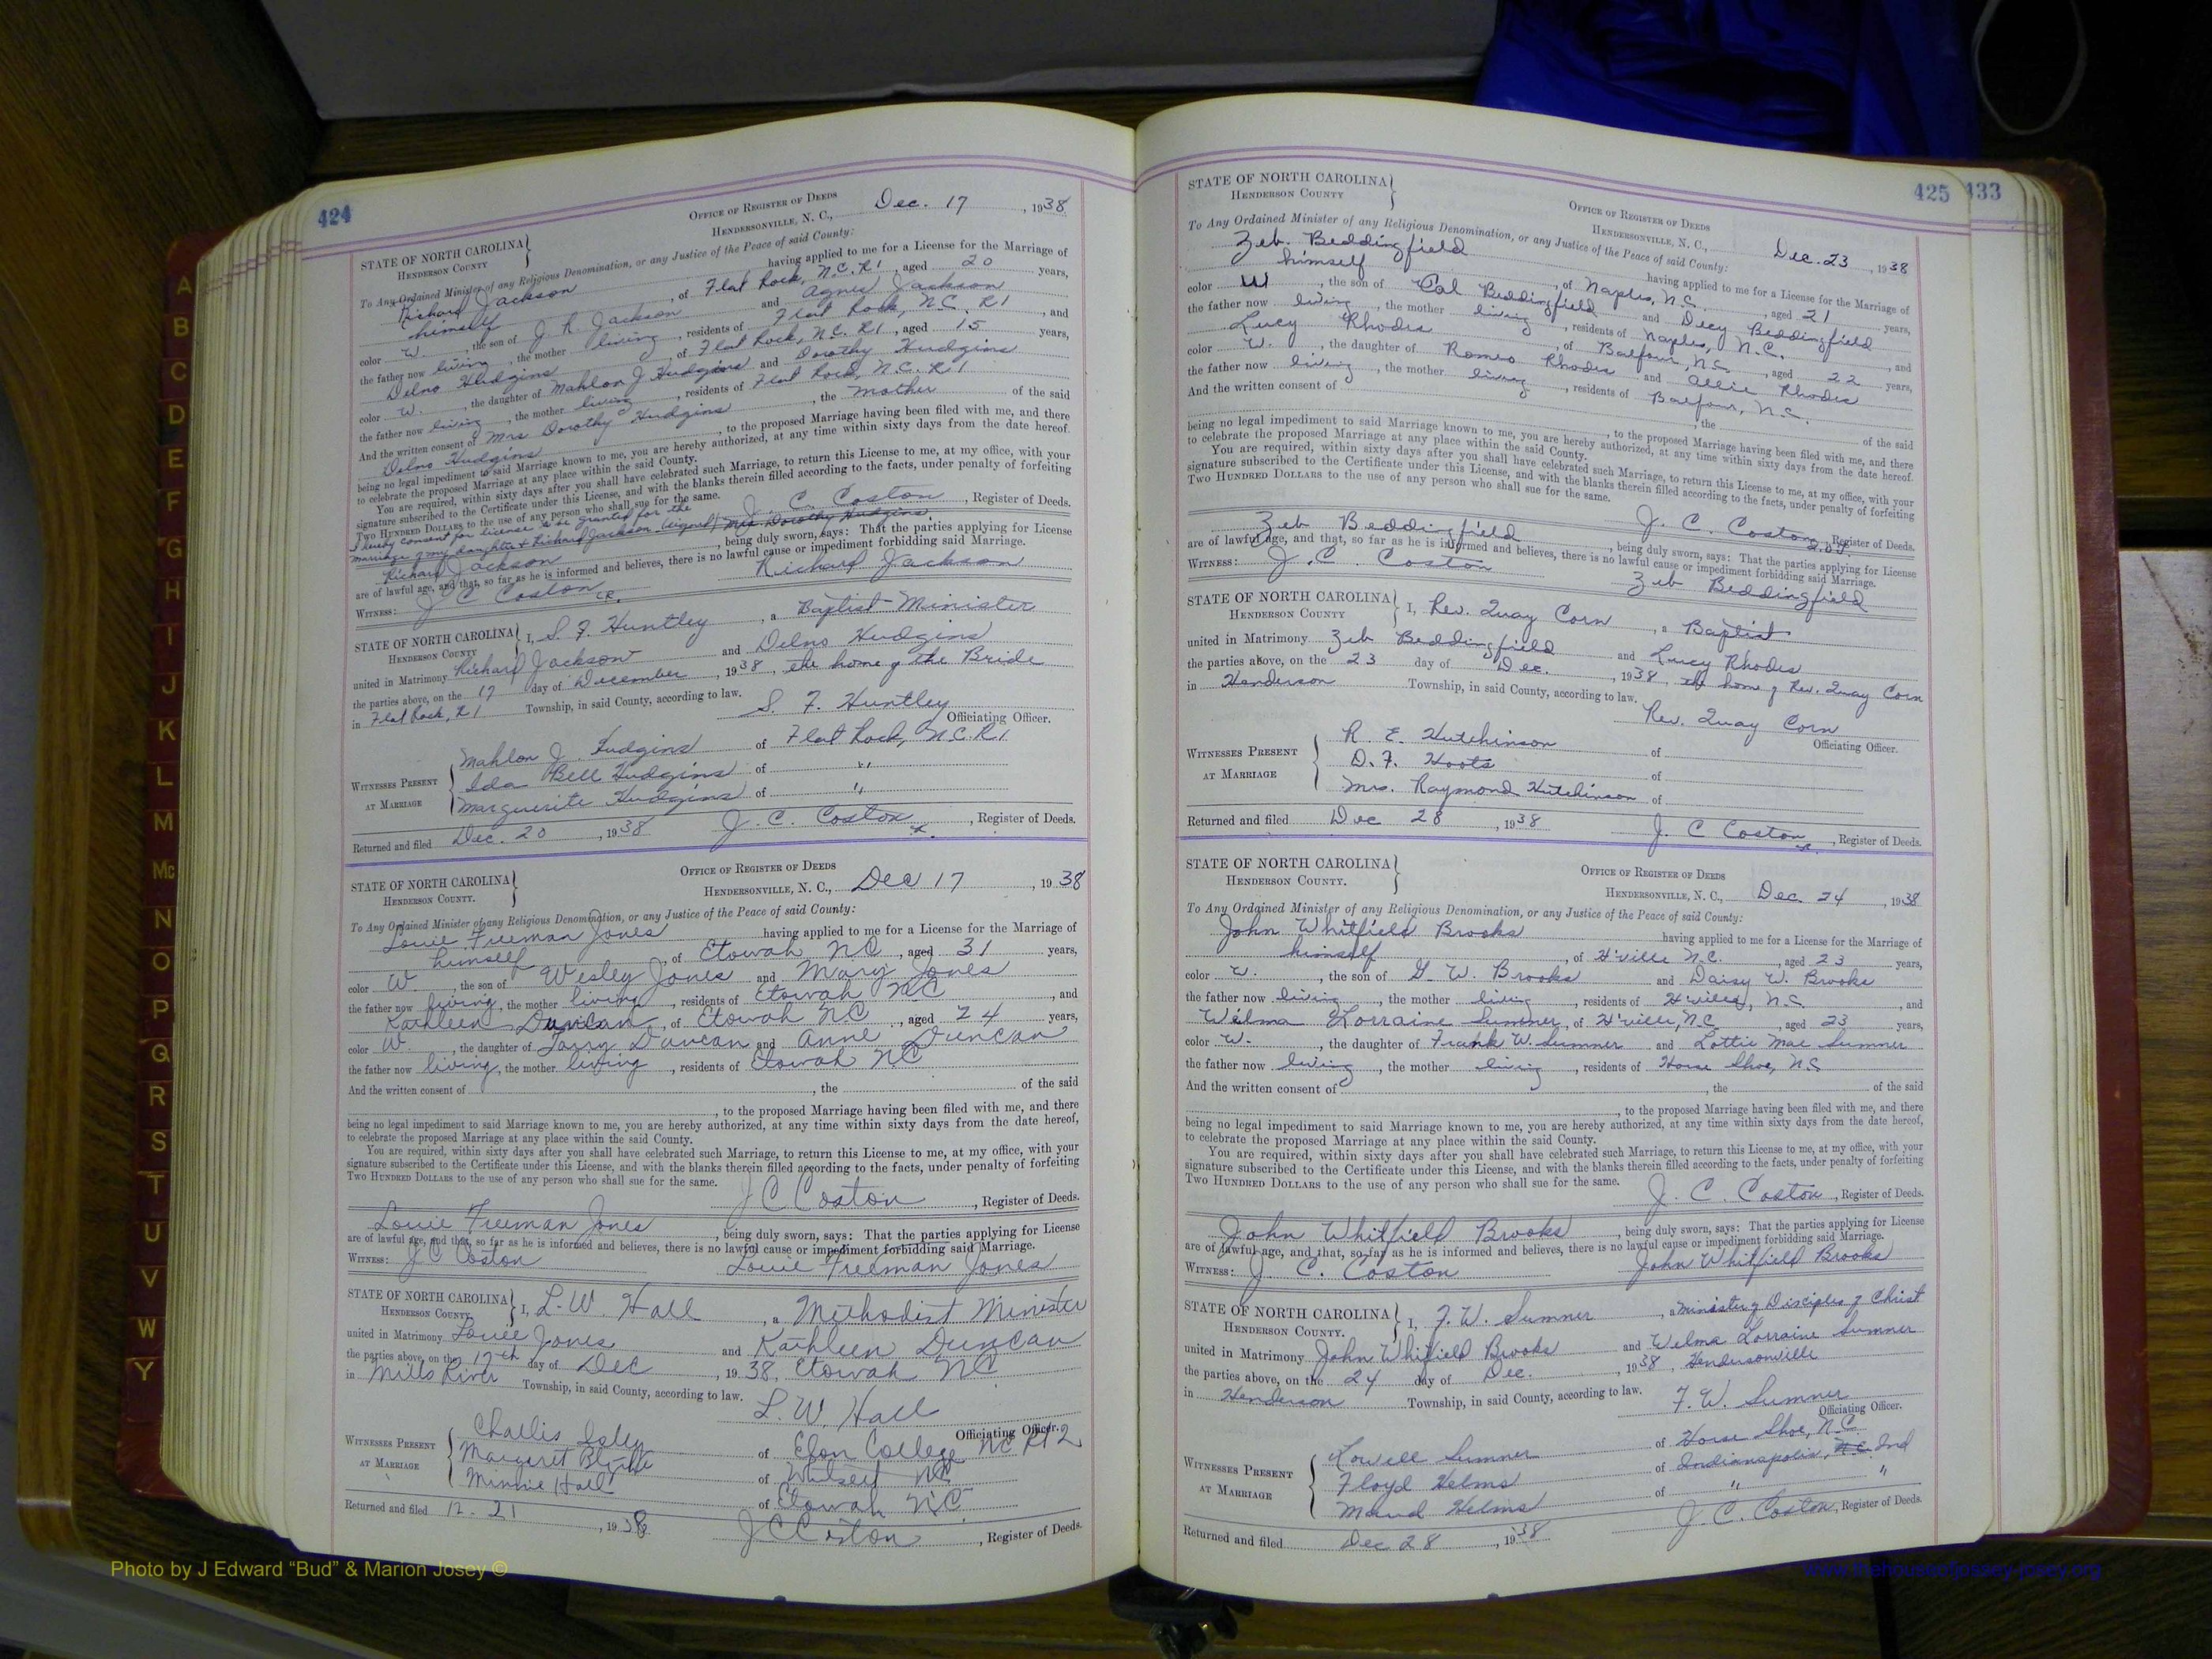 424
STATE OF NORTH CAROLINA
HENDERSON COUNTY
OFFICE OF REGISTER OF DEEDS
HENDERSONVILLE, N. C., Dec. 17, 1938
To Any Ordained Minister of any Religious Denomination, or any Justice of the Peace of said County:
Richard Jackson having applied to me for a License for the Marriage of
himself, of Flat Rock, N.C. R1, aged 20 years,
color W., the son of J. R. Jackson and Agnes Jackson
the father now living, the mother living, residents of Flat Rock, N.C. R1, and
Delno Hudgins, of Flat Rock, N.C. R1, aged 15 years,
color W., the daughter of Mahlon J Hudgins and Dorothy Hudgins
the father now living, the mother living, residents of Flat Rock, N.C. R1
And the written consent of Mrs Dorothy Hudgins, the mother of the said
Delno Hudgins, to the proposed Marriage having been filed with me, and there
being no legal impediment to said Marriage known to me, you are hereby authorized, at any time within sixty days from the date hereof,
to celebrate the proposed Marriage at any place within the said County.
You are required, within sixty days after you shall have celebrated such Marriage, to return this License to me, at my office, with your
signature subscribed to the Certificate under this License, and with the blanks therein filled according to the facts, under penalty of forfeiting
TWO HUNDRED DOLLARS to the use of any person who shall sue for the same.
J. C. Coston, Register of Deeds.
I hereby consent for license to be granted for the
marriage of my daughter & Richard Jackson (signed) Mrs. Dorothy Hudgins.
Richard Jackson, being duly sworn, says: That the parties applying for License
are of lawful age, and that, so far as he is informed and believes, there is no lawful cause or impediment forbidding said Marriage.
Witness: J C Coston Richard Jackson
STATE OF NORTH CAROLINA
HENDERSON COUNTY
I, S. F. Huntley, a Baptist Minister
united in Matrimony Richard Jackson and Delno Hudgins
the parties above, on the 17 day of December, 1938, the home of the Bride
in Flat Rock, R1 Township, in said County, according to law.
S. F. Huntley
Officiating Officer.
WITNESSES PRESENT AT MARRIAGE
Mahlon J. Hudgins of Flat Rock, N.C. R1
Ida Bell Hudgins of "
Marguerite Hudgins of "
Returned and filed Dec. 20, 1938 J. C. Coston, Register of Deeds.
STATE OF NORTH CAROLINA
HENDERSON COUNTY.
OFFICE OF REGISTER OF DEEDS
HENDERSONVILLE, N. C., Dec 17, 1938
To Any Ordained Minister of any Religious Denomination, or any Justice of the Peace of said County:
Louie Freeman Jones having applied to me for a License for the Marriage of
himself, of Etowah NC, aged 31 years,
color W, the son of Wesley Jones and Mary Jones
the father now living, the mother living, residents of Etowah NC, and
Kathleen Duncan, of Etowah NC, aged 24 years,
color W., the daughter of Duncan and Anne Duncan
the father now living, the mother living, residents of Etowah NC
And the written consent of, the of the said
, to the proposed Marriage having been filed with me, and there
being no legal impediment to said Marriage known to me, you are hereby authorized, at any time within sixty days from the date hereof,
to celebrate the proposed Marriage at any place within the said County.
You are required, within sixty days after you shall have celebrated such Marriage, to return this License to me, at my office, with your
signature subscribed to the Certificate under this License, and with the blanks therein filled according to the facts, under penalty of forfeiting
TWO HUNDRED DOLLARS to the use of any person who shall sue for the same.
J C Coston, Register of Deeds.
Louie Freeman Jones, being duly sworn, says: That the parties applying for License
are of lawful age, and that, so far as he is informed and believes, there is no lawful cause or impediment forbidding said Marriage.
Witness: J C Coston Louie Freeman Jones
STATE OF NORTH CAROLINA
HENDERSON COUNTY.
I, L. W. Hall, a Methodist Minister
united in Matrimony Louie Jones and Kathleen Duncan
the parties above, on the 17th day of Dec, 1938, Etowah NC
in Mills River Township, in said County, according to law.
L. W. Hall
Officiating Officer.
WITNESSES PRESENT AT MARRIAGE
Challis Isley of Elon College NC Rt 2
Margaret Blythe of NC
Minnie Hall of Etowah NC
Returned and filed 12-21, 1938 J C Coston, Register of Deeds.
425
433
STATE OF NORTH CAROLINA
HENDERSON COUNTY
OFFICE OF REGISTER OF DEEDS
HENDERSONVILLE, N. C., Dec. 23, 1938
To Any Ordained Minister of any Religious Denomination, or any Justice of the Peace of said County:
Zeb. Beddingfield having applied to me for a License for the Marriage of
himself, of Naples, N.C., aged 21 years,
color W, the son of Cal Beddingfield and Decy Beddingfield
the father now living, the mother living, residents of Naples, N.C., and
Lucy Rhodes, of Balfour, N.C., aged 22 years,
color W., the daughter of Romeo Rhodes and Allie Rhodes
the father now living, the mother living, residents of Balfour, N.C.
And the written consent of, the of the said
, to the proposed Marriage having been filed with me, and there
being no legal impediment to said Marriage known to me, you are hereby authorized, at any time within sixty days from the date hereof.
to celebrate the proposed Marriage at any place within the said County.
You are required, within sixty days after you shall have celebrated such Marriage, to return this License to me, at my office, with your
signature subscribed to the Certificate under this License, and with the blanks therein filled according to the facts, under penalty of forfeiting
TWO HUNDRED DOLLARS to the use of any person who shall sue for the same.
J. C. Coston, Register of Deeds.
Zeb Beddingfield, being duly sworn, says: That the parties applying for License
are of lawful age, and that, so far as he is informed and believes, there is no lawful cause or impediment forbidding said Marriage.
Witness: J. C. Coston Zeb Beddingfield
STATE OF NORTH CAROLINA
HENDERSON COUNTY
I, Rev. Quay Corn, a Baptist
united in Matrimony Zeb Beddingfield and Lucy Rhodes
the parties above, on the 23 day of Dec., 1938, the home of Rev. Quay Corn
in Henderson Township, in said County, according to law.
Rev. Quay Corn
Officiating Officer.
WITNESSES PRESENT AT MARRIAGE
R. E. Hutchinson of
D. F. Hoots of
Mrs. Raymond Hutchinson of
Returned and filed Dec 28, 1938 J. C Coston, Register of Deeds.
STATE OF NORTH CAROLINA
HENDERSON COUNTY.
OFFICE OF REGISTER OF DEEDS
HENDERSONVILLE, N. C., Dec. 24, 1938
To Any Ordained Minister of any Religious Denomination, or any Justice of the Peace of said County:
John Whitfield Brooks having applied to me for a License for the Marriage of
himself, of H'ville N.C., aged 23 years,
color W., the son of G. W. Brooks and Daisy W. Brooks
the father now living, the mother living, residents of H'ville, N.C., and
Welma Lorraine Sumner, of H'ville, N.C., aged 23 years,
color W., the daughter of Frank W. Sumner and Lottie Mae Sumner
the father now living, the mother living, residents of Horse Shoe, N.C.
And the written consent of, the of the said
, to the proposed Marriage having been filed with me, and there
being no legal impediment to said Marriage known to me, you are hereby authorized, at any time within sixty days from the date hereof,
to celebrate the proposed Marriage at any place within the said County.
You are required, within sixty days after you shall have celebrated such Marriage, to return this License to me, at my office, with your
signature subscribed to the Certificate under this License, and with the blanks therein filled according to the facts, under penalty of forfeiting
TWO HUNDRED DOLLARS to the use of any person who shall sue for the same.
J. C. Coston, Register of Deeds.
John Whitfield Brooks, being duly sworn, says: That the parties applying for License
are of lawful age, and that, so far as he is informed and believes, there is no lawful cause or impediment forbidding said Marriage.
Witness: J. C. Coston John Whitfield Brooks
STATE OF NORTH CAROLINA
HENDERSON COUNTY.
I, F. W. Sumner, a minister of Disciples of Christ
united in Matrimony John Whitfield Brooks and Welma Lorraine Sumner
the parties above, on the 24 day of Dec., 1938, Hendersonville
in Henderson Township, in said County, according to law.
F. W. Sumner
Officiating Officer.
WITNESSES PRESENT AT MARRIAGE
Lowell Sumner of Horse Shoe, N.C.
Floyd Helms of Indianapolis, N.C. Ind
Maud Helms of " "
Returned and filed Dec. 28, 1938 J. C. Coston, Register of Deeds.
A
B
C
D
E
F
G
H
I
J
K
L
M
Mc
N
O
P
Q
R
S
T
U
V
W
Y
Photo by J Edward "Bud" & Marion Josey ©
www.thehouseofjossey-josey.org